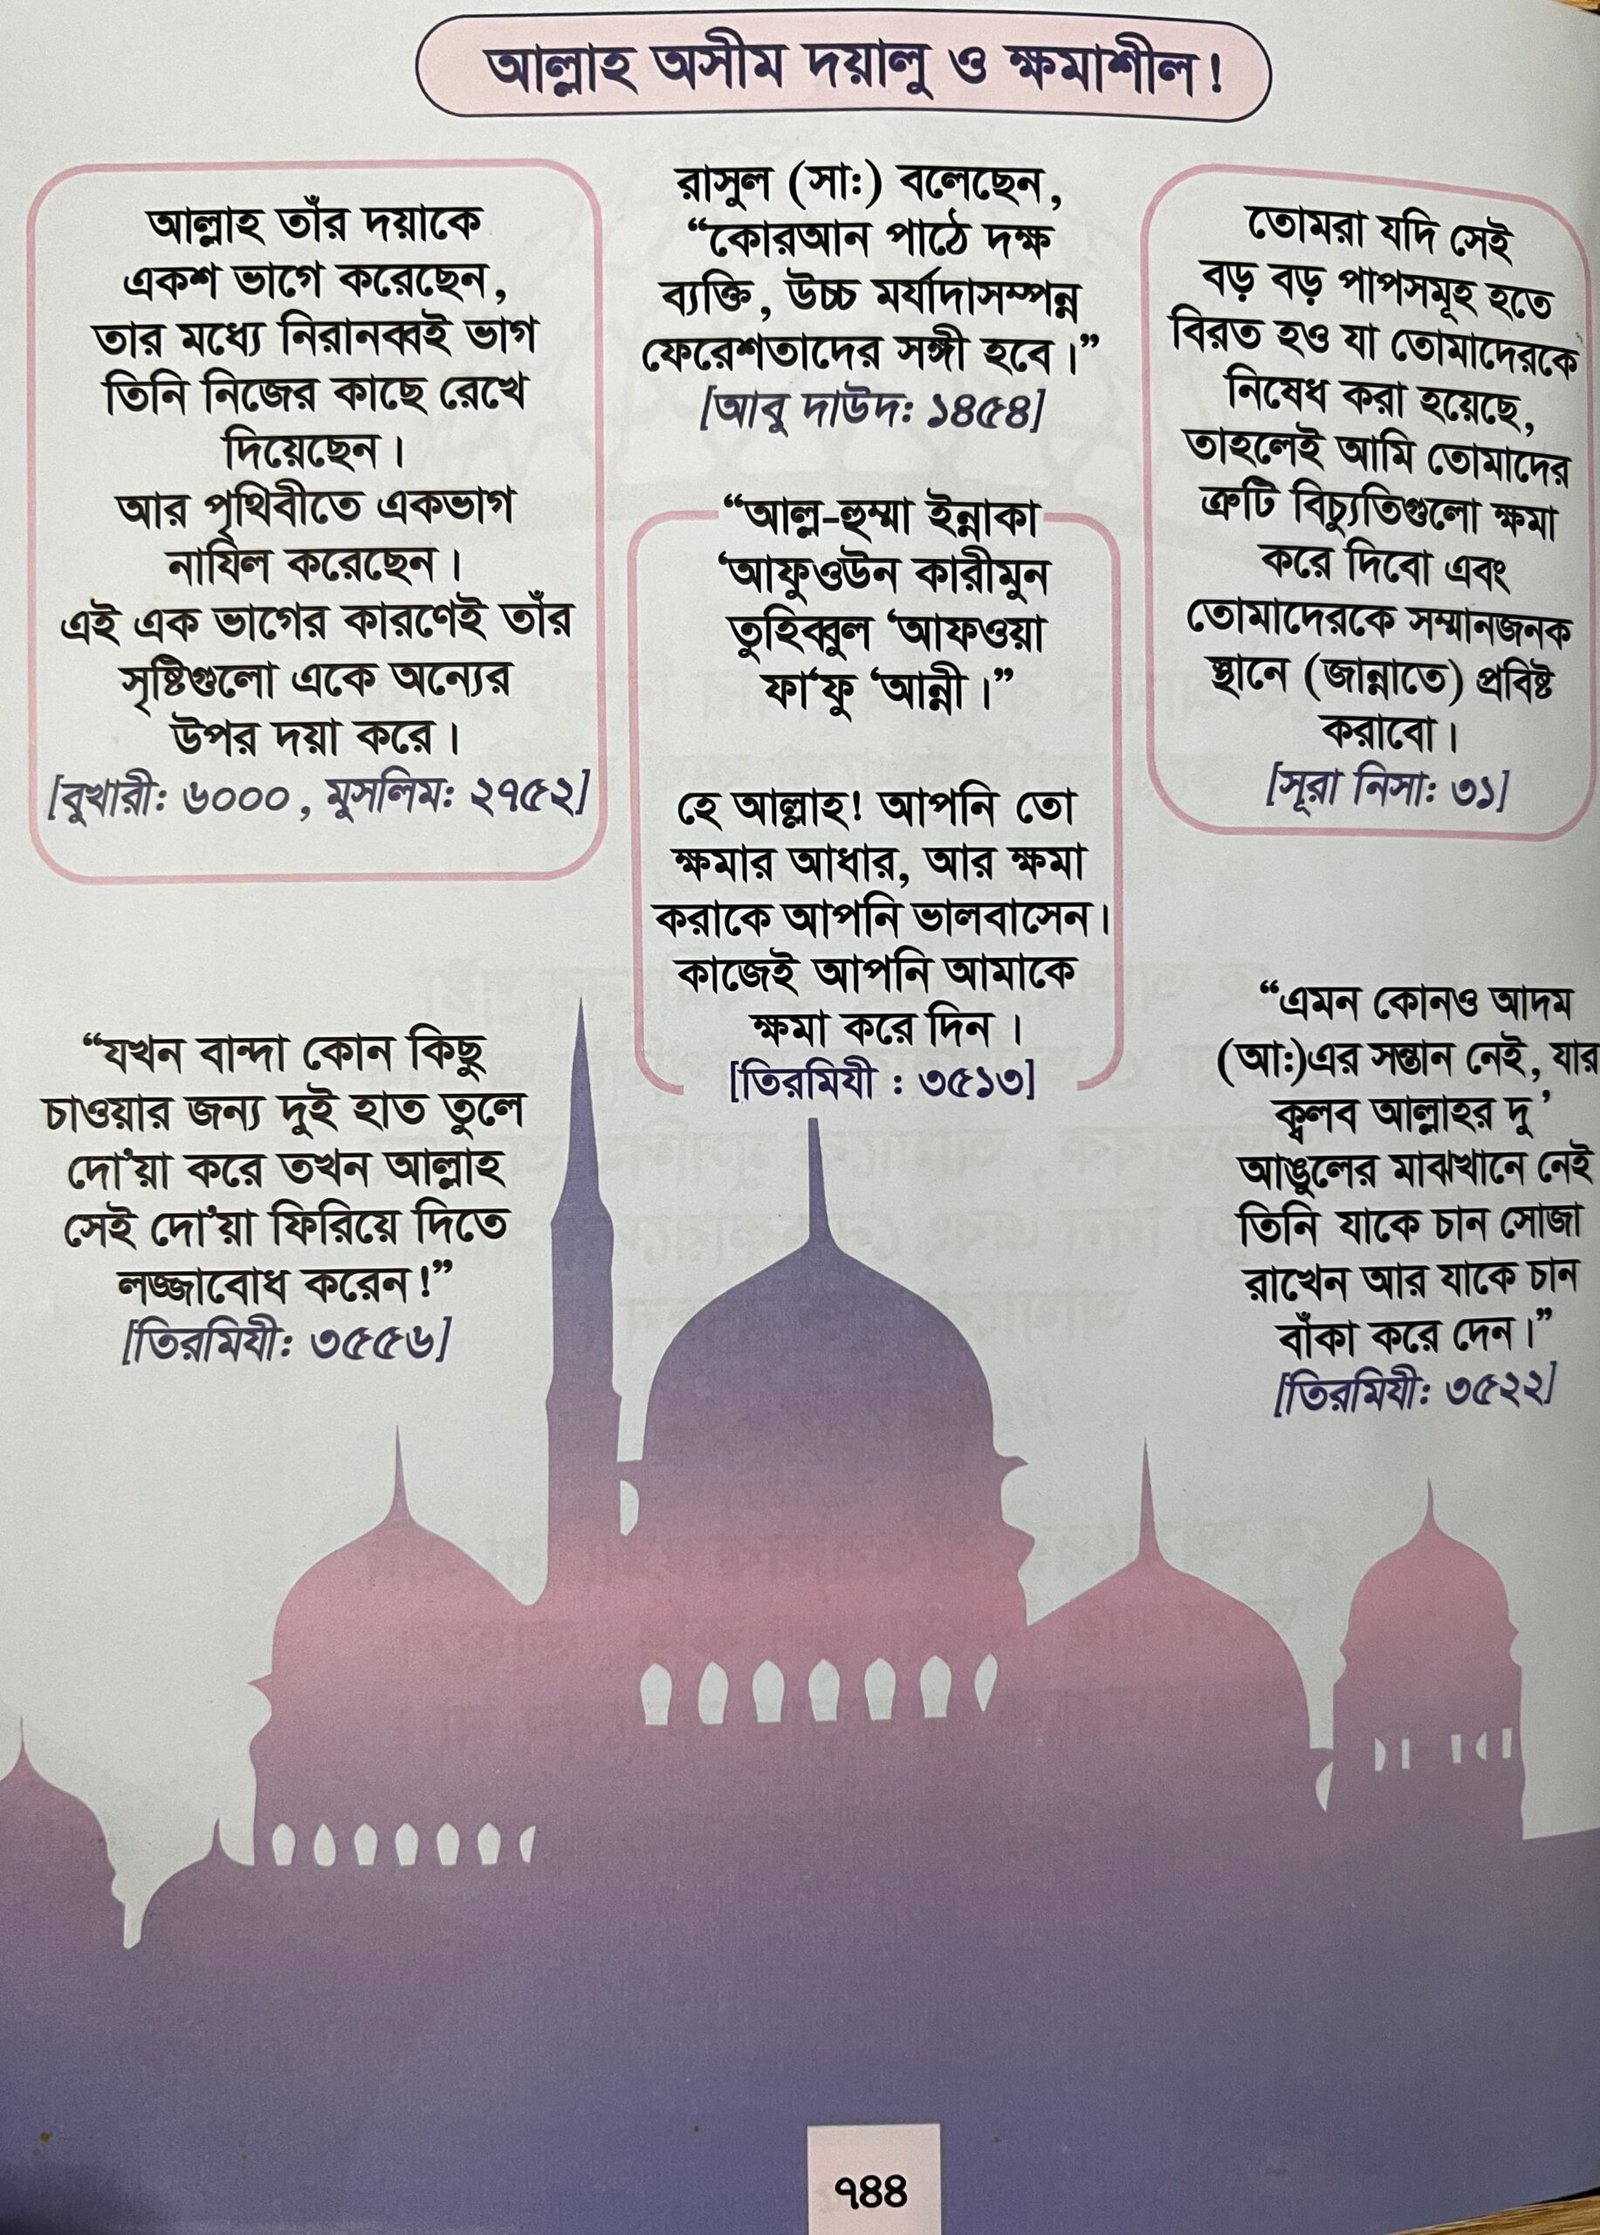 আল্লাহ অসীম দয়ালু ও ক্ষমাশীল!
আল্লাহ তাঁর দয়াকে
একশ ভাগে করেছেন,
তার মধ্যে নিরানব্বই ভাগ
তিনি নিজের কাছে রেখে
দিয়েছেন।
আর পৃথিবীতে একভাগ
নাযিল করেছেন।
এই এক ভাগের কারণেই তাঁর
সৃষ্টিগুলো একে অন্যের
উপর দয়া করে।
[বুখারী: ৬০০০, মুসলিম: ২৭৫২]
“যখন বান্দা কোন কিছু
চাওয়ার জন্য দুই হাত তুলে
দো’য়া করে তখন আল্লাহ
সেই দো’য়া ফিরিয়ে দিতে
লজ্জাবোধ করেন!”
[তিরমিযী: ৩৫৫৬]
রাসুল (সা:) বলেছেন,
“কোরআন পাঠে দক্ষ
ব্যক্তি, উচ্চ মর্যাদাসম্পন্ন
ফেরেশতাদের সঙ্গী হবে।”
[আবু দাউদ: ১৪৫৪]
“আল্ল-হুম্মা ইন্নাকা
‘আফুওউন কারীমুন
তুহিব্বুল ‘আফওয়া
ফা‘ফু ‘আন্নী।”
হে আল্লাহ! আপনি তো
ক্ষমার আধার, আর ক্ষমা
করাকে আপনি ভালবাসেন।
কাজেই আপনি আমাকে
ক্ষমা করে দিন ।
[তিরমিযী : ৩৫১৩]
তোমরা যদি সেই
বড় বড় পাপসমূহ হতে
বিরত হও যা তোমাদেরকে
নিষেধ করা হয়েছে,
তাহলেই আমি তোমাদের
ত্রুটি বিচ্যুতিগুলো ক্ষমা
করে দিবো এবং
তোমাদেরকে সম্মানজনক
স্থানে (জান্নাতে) প্রবিষ্ট
করাবো।
[সূরা নিসা: ৩১]
“এমন কোনও আদম
(আ:)এর সন্তান নেই, যার
ক্বলব আল্লাহর দু’
আঙুলের মাঝখানে নেই
তিনি যাকে চান সোজা
রাখেন আর যাকে চান
বাঁকা করে দেন।”
[তিরমিযী: ৩৫২২]
৭৪৪